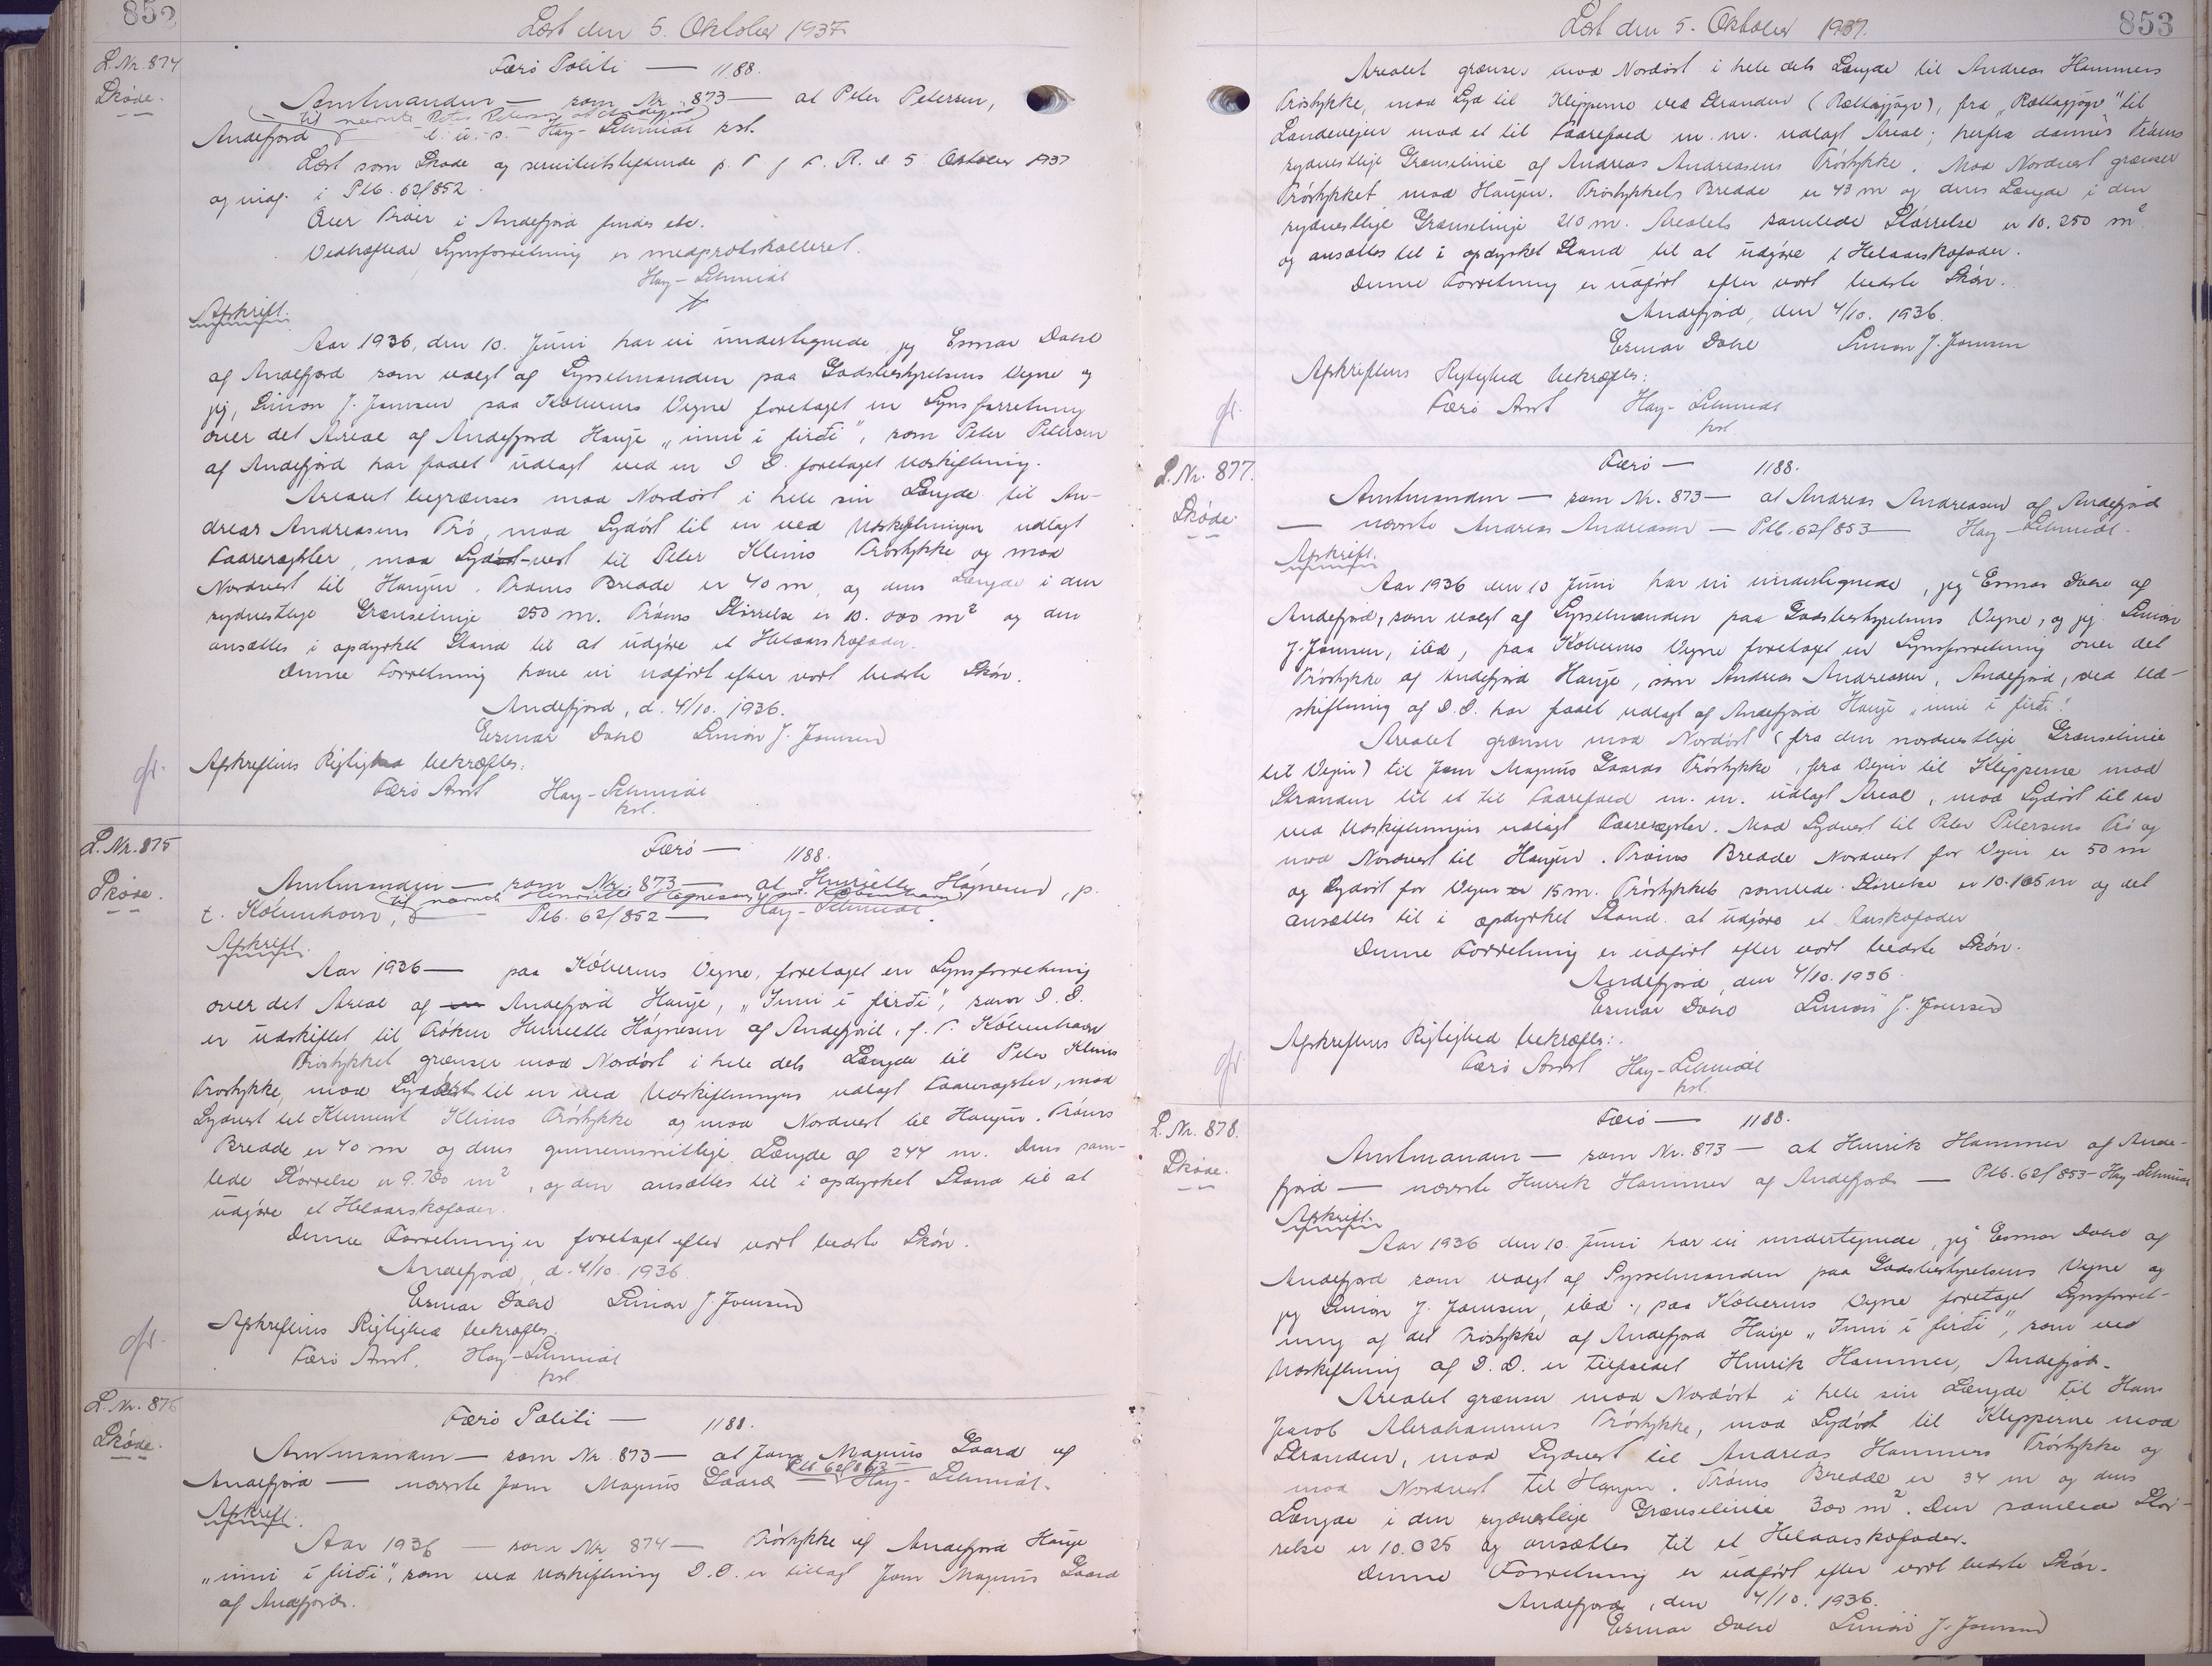 852
Læst den 5. Oktober 1937.
L. Nr. 874
Skøde.
Færø Politi — 1188.
Amtmanden — som Nr. 873 — at Peter Petersen,
til nævnte Peter Petersen af Andefjord
Andefjord — l. ü. s. — Hay-Schmidt kst.
Læst som Skøde og servitutstiftende p. T. f. F. R. d. 5 Oktober 1937
og indf. i Ptb. 62/852.
Over Trøer i Andefjord findes etc.
Vedhæftede Synsforretning er medprotokolleret.
Hay-Schmidt
Afskrift.
Aar 1936, den 10. Juni har vi undertegnede, jeg Esmar Dahl
af Andefjord som valgt af Sysselmanden paa Godsbestyrelsens Vegne og
jeg, Simon J. Joensen paa Køberens Vegne foretaget en Synsforretning
over det Areal af Andefjord Hauge „inni i firði", som Peter Petersen
af Andefjord har faaet udlagt ved en D. D. foretaget Udskiftning.
Arealet begrænses mod Nordøst i hele sin Længde til An-
dreas Andreasens Trø, mod Sydøst til en ved Udskiftningen udlagt
Faarerøgter, mod Syd-vest til Peter Kleins Trøstykke og mod
Nordvest til Haugen. Trøens Bredde er 40 m, og dens Længde i den
sydvestlige Grænselinje 250 m. Trøens Størrelse er 10.000 m² og den
ansættes i opdyrket Stand til at udgøre et Helaarskofoder.
Denne Forretning have vi udført efter vort bedste Skøn.
Andefjord, d. 4/10. 1936.
Esmar Dahl Simon J. Joensen
Afskriftens Rigtighed bekræftes:
Færø Amt Hay-Schmidt
kst.
L. Nr. 875
Skøde.
Færø — 1188.
Amtmanden — som Nr. 873 — at Henriette Høgnesen, p.
til nævnte Henriette Høgnesen, p.t. København
t. København, — Ptb. 62/852 — Hay-Schmidt.
Afskrift.
Aar 1936 — paa Køberens Vegne, foretaget en Synsforretning
over det Areal af Andefjord Hauge, „Inni i firði", som D. D.
er udskiftet til Frøken Henriette Høgnesen af Andefjord, f. T. København
Trøstykket grænser mod Nordøst i hele dets Længde til Peter Kleins
Trøstykke, mod Sydøst til en ved Udskiftningen udlagt Faarerøgter, mod
Sydvest til Klement Kleins Trøstykke og mod Nordvest til Haugen. Trøens
Bredde er 40 m og dens gennemsnitlige Længde af 244 m. Dens sam-
lede Størrelse er 9.760 m², og den ansættes til i opdyrket Stand til at
udgøre et Helaarskofoder.
Denne Forretning er foretaget efter vort bedste Skøn.
Andefjord, d. 4/10. 1936.
Esmar Dahl Simon J. Joensen
Afskriftens Rigtighed bekræftes.
Færø Amt. Hay-Schmidt
kst
L. Nr. 876
Skøde.
Færø Politi — 1188.
Amtmanden — som Nr. 873 — at Joen Magnus Gaard af
Ptb 62/863 —
Andefjord — nævnte Joen Magnus Gaard — Hay-Schmidt.
Afskrift.
Aar 1936 — som Nr. 874 — Trøstykke af Andefjord Hauge
„inni i firði", som ved Udskiftning D. D. er tillagt Joen Magnus Gaard
af Andefjord.
Læst den 5. Oktober 1937.
853
Arealet grænser mod Nordøst i hele dets Længde til Andreas Hammers
Trøstykke, mod Syd til Klipperne ved Stranden (Rættagjógv), fra „Rættagjógv" til
Landevejen mod et til Faarefold m. m. udlagt Areal; herfra dannes Trøens
sydvestlige Grænselinie af Andreas Andreasens Trøstykke. Mod Nordvest grænser
Trøstykket mod Haugen. Trøstykkets Bredde er 43 m og dens Længde i den
sydvestlige Grænselinje 210 m. Arealets samlede Størrelse er 10.250 m²
og ansættes til i opdyrket Stand til at udgøre 1 Helaarskofoder.
Denne Forretning er udført efter vort bedste Skøn.
Andefjord, den 4/10. 1936.
Esmar Dahl Simon J. Joensen
Afskriftens Rigtighed bekræftes:
Færø Amt Hay-Schmidt
kst
L. Nr. 877.
Skøde.
Færø — 1188.
Amtmanden — som Nr. 873 — at Andreas Andreasen af Andefjord
— nævnte Andreas Andreasen — Ptb. 62/853 — Hay-Schmidt.
Afskrift.
Aar 1936 den 10 Juni har vi undertegnede, jeg Esmar Dahl af
Andefjord, som valgt af Sysselmanden paa Godsbestyrelsens Vegne, og jeg Simon
J. Joensen, ibd, paa Køberens Vegne foretaget en Synsforretning over det
Trøstykke af Andefjord Hauge, som Andreas Andreasen, Andefjord, ved Ud-
skiftning af D. D. har faaet udlagt af Andefjord Hauge „inni i firði".
Arealet grænser mod Nordøst (fra den nordvestlige Grænselinie
til Vejen) til Joen Magnus Gaards Trøstykke, fra Vejen til Klipperne mod
Stranden til et til Faarefold m. m. udlagt Areal, mod Sydøst til en
ved Udskiftningen udlagt Faarerøgter. Mod Sydvest til Peter Petersens Trø og
mod Nordvest til Haugen. Trøens Bredde Nordvest for Vejen er 50 m
og Sydøst for Vejen er 15 m. Trøstykkets samlede Størrelse er 10.165 m og det
ansættes til i opdyrket Stand at udgøre et Aarskofoder
Denne Forretning er udført efter vort bedste Skøn.
Andefjord, den 4/10. 1936.
Esmar Dahl Simon J. Joensen
Afskriftens Rigtighed bekræftes:
Færø Amt Hay-Schmidt
kst.
L. Nr. 878.
Skøde.
Færø — 1188.
Amtmanden — som Nr. 873 — at Henrik Hammer af Ande-
fjord — nævnte Henrik Hammer af Andefjord — Ptb. 62/853 — Hay-Schmidt
Afskrift.
Aar 1936 den 10. Juni har vi undertegnede, jeg Esmar Dahl af
Andefjord som valgt af Sysselmanden paa Godsbestyrelsens Vegne og
jeg Simon J. Joensen, ibd., paa Køberens Vegne foretaget Synsforret-
ning af det Trøstykke af Andefjord Hauge „Inni i firði", som ved
Udskiftning af D. D. er tilfaldet Henrik Hammer, Andefjord.
Arealet grænser mod Nordøst i hele sin Længde til Hans
Jacob Abrahamsens Trøstykke, mod Sydøst til Klipperne mod
Stranden, mod Sydvest til Andreas Hammers Trøstykke og
mod Nordvest til Haugen. Trøens Bredde er 34 m og dens
Længde i den sydvestlige Grænselinie 300 m². Den samlede Stør-
relse er 10.025 og ansættes til et Helaarskofoder.
Denne Forretning er udført efter vort bedste Skøn.
Andefjord, den 4/10. 1936.
Esmar Dahl Simon J. Joensen